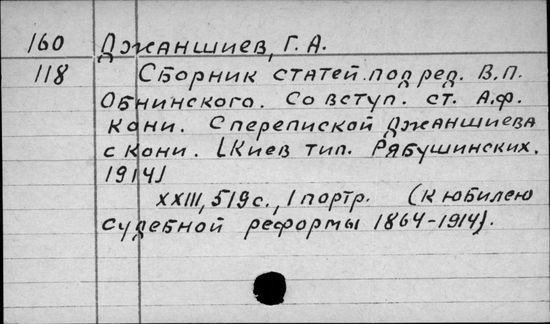 160 Джаншиев, Г. А.
118 Сборник статей под ред. В. П.
Обнинского. Со вступ. ст. А. Ф.
Кони. С перепиской Джаншиева
с Кони. [Киев тип. Рябушинских.
1914]
XXIII, 519 с., 1 портр. (К юбилею
судебной реформы 1864-1914).